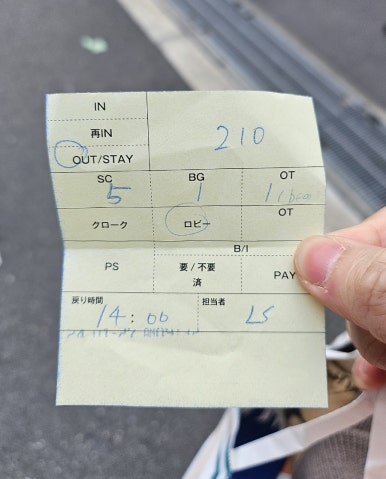 IN
再IN
OUT/STAY
210
SC BG OT
5 1 1
クローク ロビー OT
B/I
PS 要/不要 PAY
済
戻り時間 担当者
14:00 LS